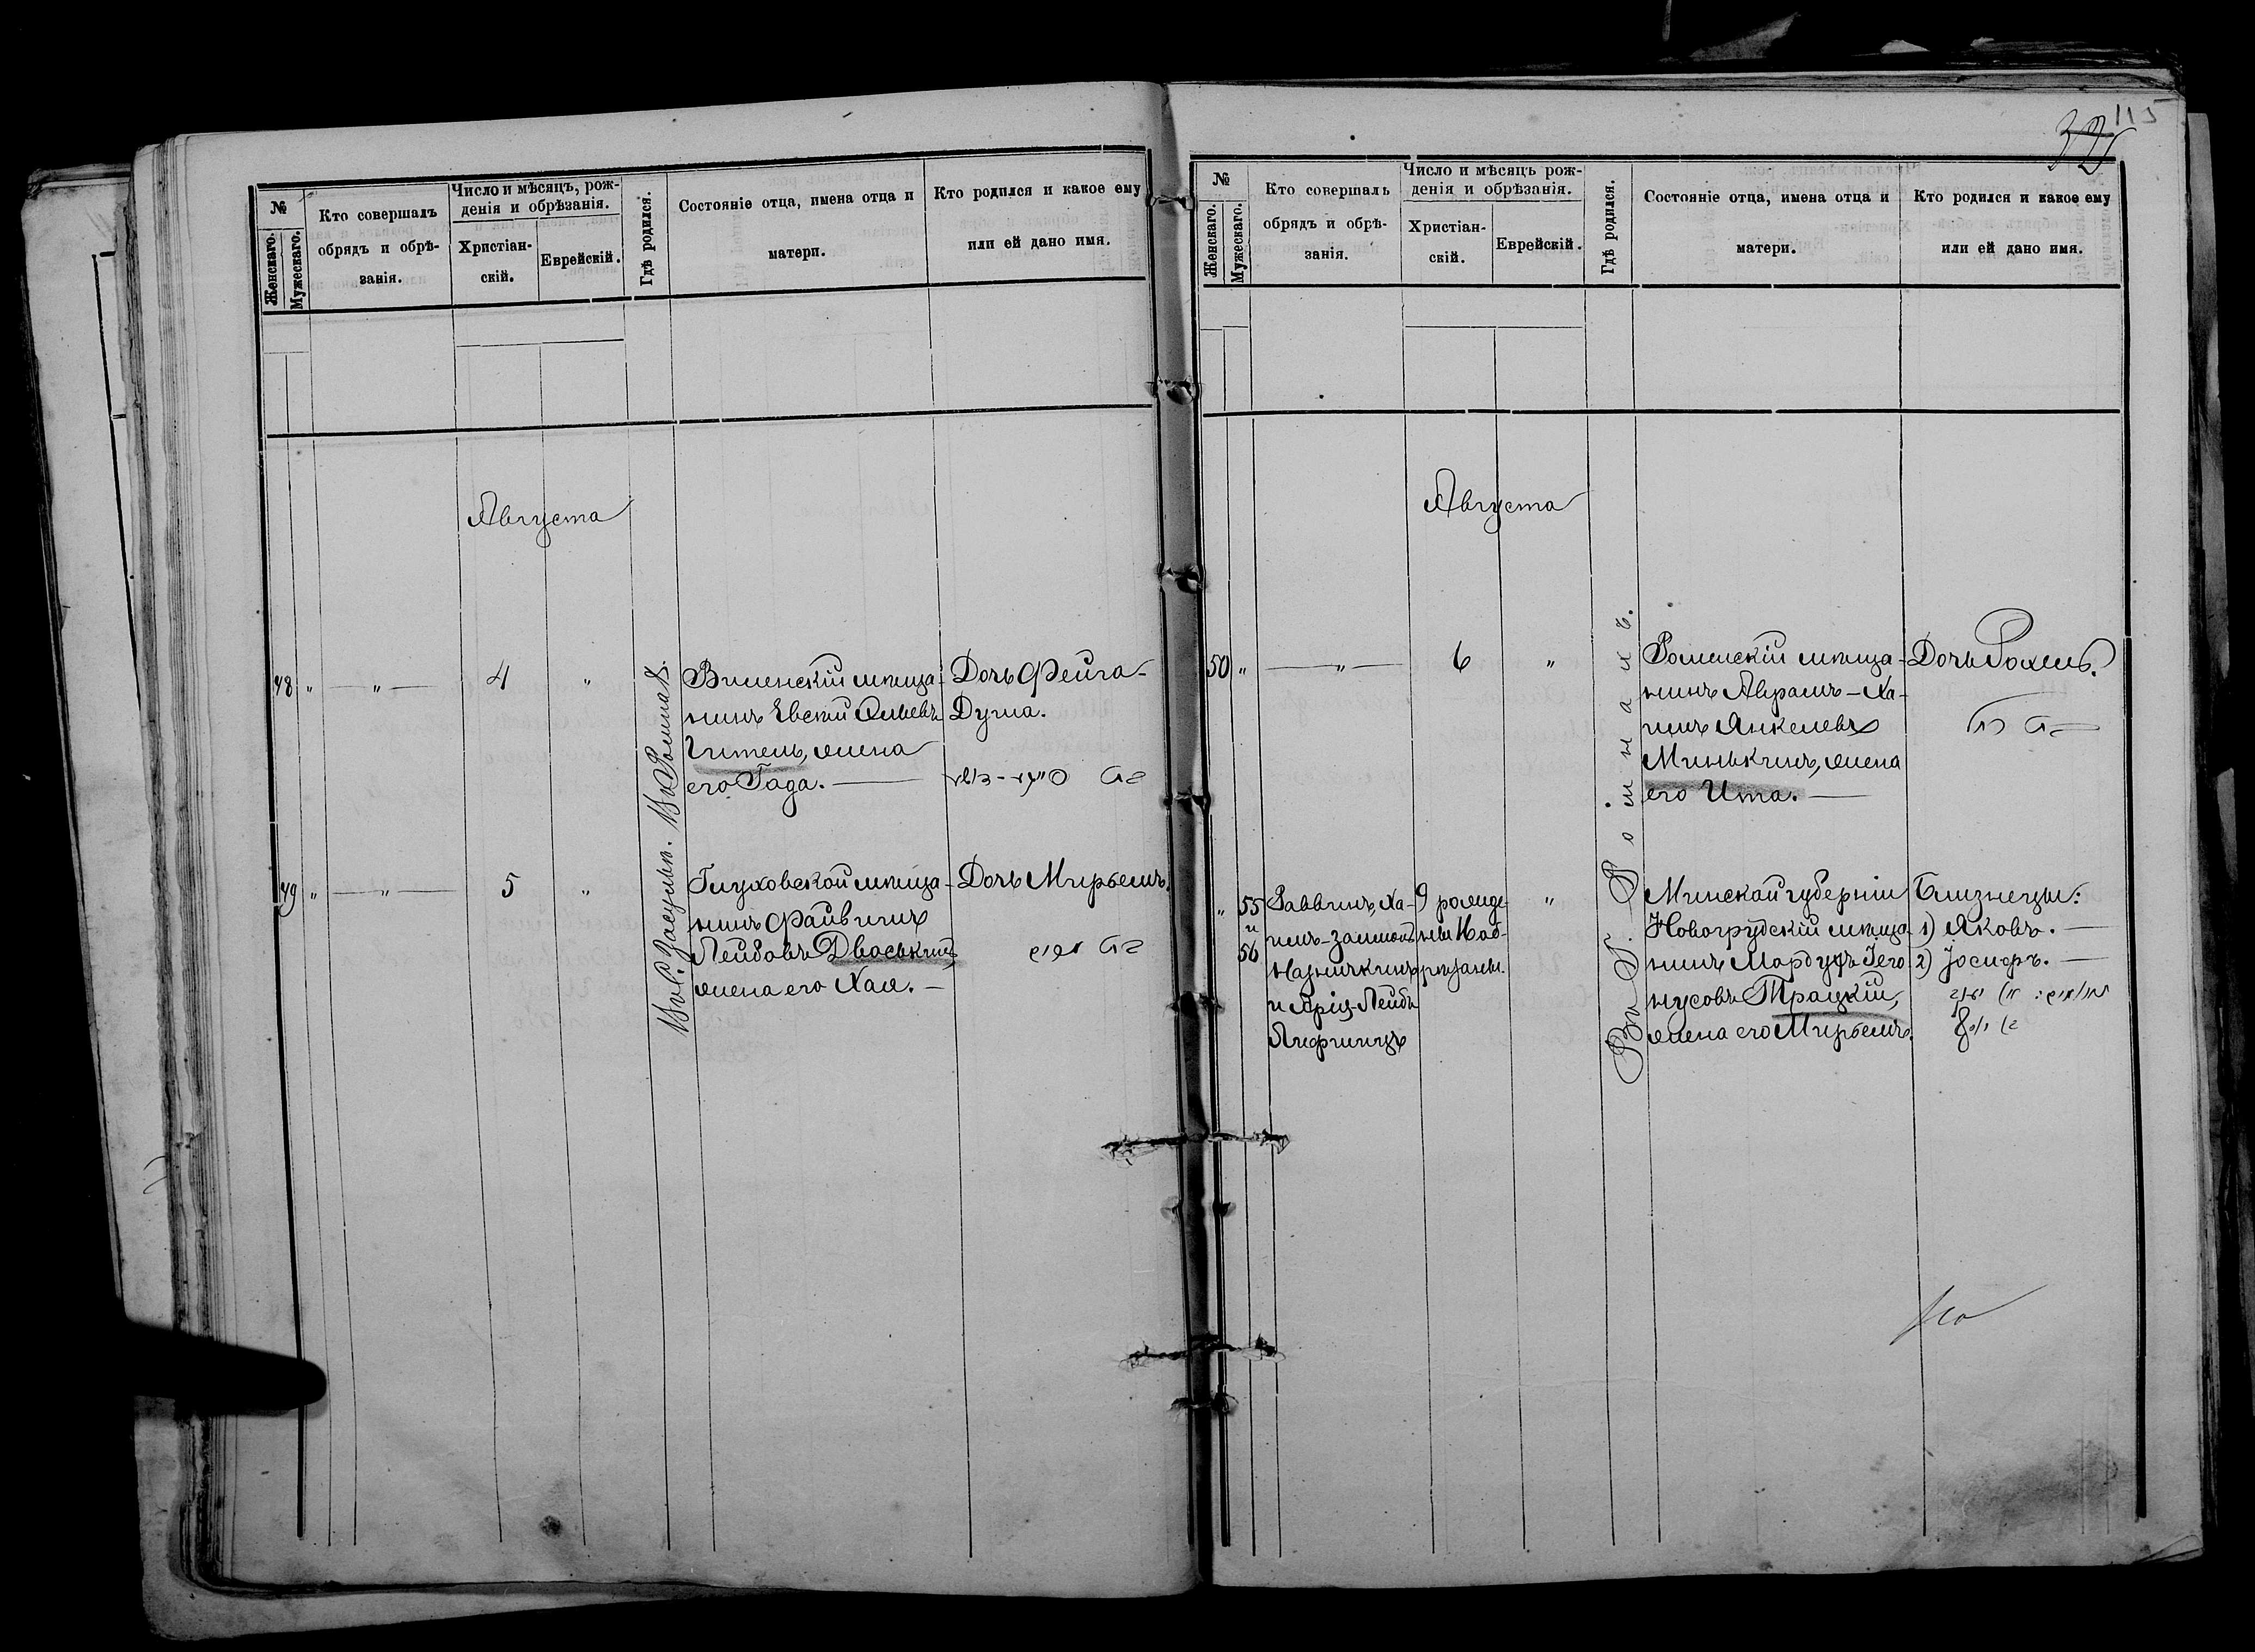 №
Женскаго.
Мужескаго.
Кто совершалъ
обрядъ и обрѣ-
занія.
Число и мѣсяцъ, рож-
денія и обрѣзанія.
Христіан-
скій.
Еврейскій.
Гдѣ родился.
Состояніе отца, имена отца и
матери.
Кто родился и какое ему
или ей дано имя.
Августа
48 " — " — 4 "
Въ Ромнахъ.
Виленскій мѣща-
нинъ
жена
его Года. —
Дочь Фейга-
Душа.
49 " — " — 5 "
Въ с. Засульи.
Глуховской мѣща-
нинъ Файвишъ
Лейбовъ Двоськинъ,
жена его Хая. —
Дочь Мирьемъ.
115
№
Женскаго.
Мужескаго.
Кто совершалъ
обрядъ и обрѣ-
занія.
Число и мѣсяцъ рож-
денія и обрѣзанія.
Христіан-
скій.
Еврейскій.
Гдѣ родился.
Состояніе отца, имена отца и
матери.
Кто родился и какое ему
или ей дано имя.
Августа
50 " — " — 6 "
Въ г. Ромнахъ.
Роменскій мѣща-
нинъ Абрамъ-Ха-
имъ Янкелевъ
Минькинъ, жена
его Ита. —
Дочь Рохль.
בת
" 55 и 56
Раввинъ, Ха-
имъ-Залманъ
и Аріи-Лейбъ
9 рожде-
ны
"
Минской губерніи
Новогрудскій мѣща-
нинъ Мордухъ Іего-
нусовъ Троцкій,
жена его Мирьемъ.
Близнецы:
1) Яковъ. —
2) Іосифъ. —